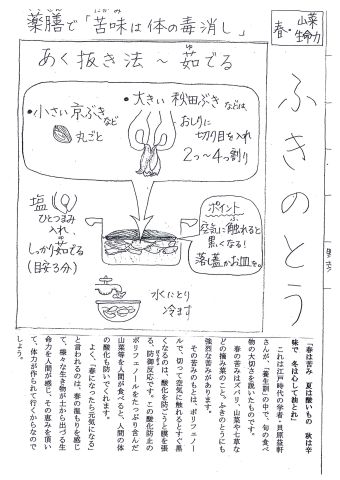 薬膳で「苦味は体の毒消し」
春・山菜
生命力
ふきのとう
あく抜き法～茹でる
・小さい京ぶき
など
丸ごと
・大きい秋田ぶきなどは、
おしりに
切り目を入れ
2つ～4つ割り
塩
ひとつまみ
入れ、
しっかり茹でる
(目安3分)
ポイント
空気に触れると
黒くなる!
落し蓋かお皿を。
水にとり
冷ます
「春は苦み　夏は酸いもの　秋は辛
味で　冬は心して油とれ」
これは江戸時代の学者・貝原益軒
さんが、「養生訓」の中で、旬の食べ
物の大切さを説いたものです。
春の苦みはズバリ、山菜や七草な
どの摘み菜のこと。ふきのとうにも
強烈な苦みがあります。
その苦みのもとは、ポリフェノー
ルで、切って空気に触れるとすぐ黒
くなるのは、酸化を防ごうと膜を張
る、防御反応です。この酸化防止の
ポリフェノールをたっぷり含んだ
山菜等を人間が食べると、人間の体
の酸化も防いでくれます。
よく、「春になったら元気になる」
と言われるのは、春の温もりを感じ
て、様々な生き物が土から出づる生
命力を人間が感じ、その恵みを頂い
て、体力が作られて行くからなので
しょう。